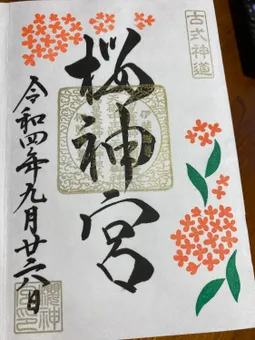 古式神道
桜神宮
令和四年九月廿六日